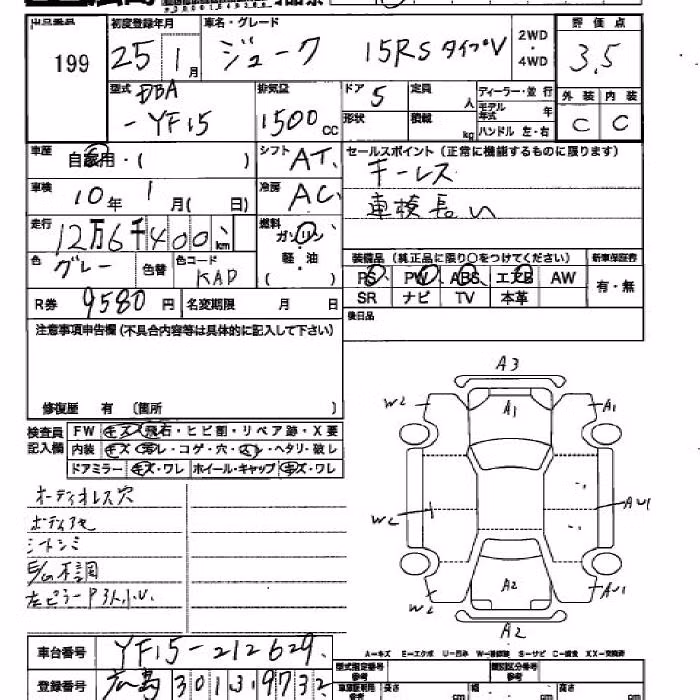 出品番号 199
初度登録年月 25 1月
車名・グレード ジューク 15RS タイプV
2WD・4WD
評価点 3.5
型式 DBA-YF15
排気量 1500cc
ドア 5
定員 人
形状
積載 kg
ディーラー・並行
モデル年式 年
ハンドル 左・右
外装 C
内装 C
車歴 自家用・( )
シフト AT
セールスポイント(正常に機能するものに限ります)
キーレス
車検長い
車検 10年 1月( 日)
冷房 AC
走行 12万6千400km
燃料 ガソリン 軽・油 ( )
色 グレー
色替
色コード KAD
装備品(純正品に限り〇をつけてください)
新車保証書 有・無
PS PW ABS エアB AW
SR ナビ TV 本革
R券 9580円
名変期限 月 日
後日品
注意事項申告欄(不具合内容等は具体的に記入して下さい)
修復歴 有 〔箇所
検査員記入欄
FW キズ・飛石・ヒビ割・リペア跡・X要
内装 キズ・汚レ・コゲ・穴・スレ・ヘタリ・破レ
ドアミラー キズ・ワレ ホイール・キャップ キズ・ワレ
オーディオレス穴
ボディアセ
シートシミ
E/G不調
A3
W2
A1
A1
W2
AU1
W2
A2
AU1
A2
車台番号 YF15-212629
A-キズ E-エクボ U-凹み
登録番号 広島 301 3 9732
型式指定番号
類別区分番号
長さ cm
幅 cm